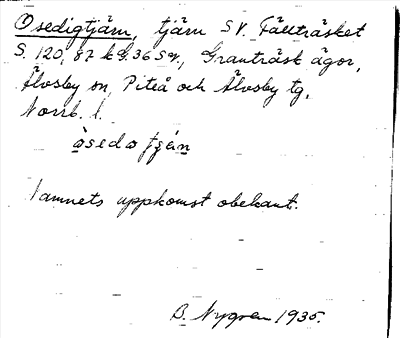 Osedigtjärn, tjärn SV. Fällträsket
S. 120, 87 k G. 36 SV., Granträsk ägor,
Älvsby sn, Piteå och Älvsby tg,
Norrb. l.
òsedo
Namnets uppkomst obekant.
B. Nygren 1935.